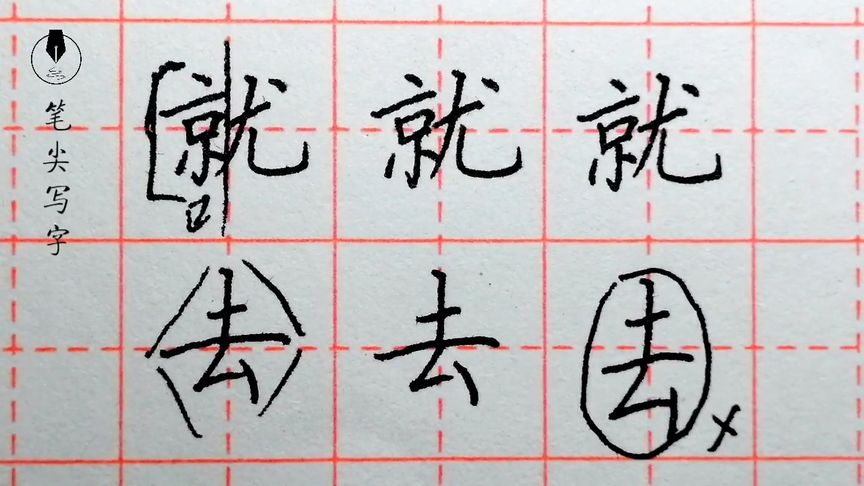 笔尖写字
就 就 就
去 去 去 ×